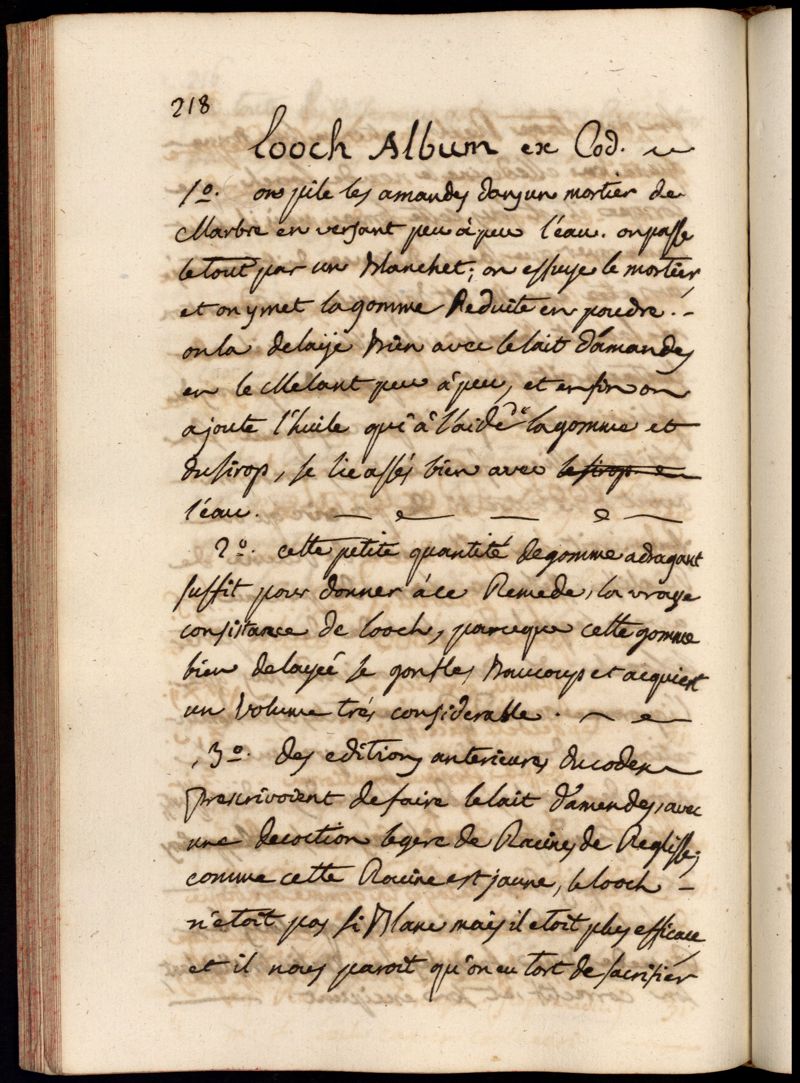 218
Looch Album ex Cod.
1º. on pile les amandes dans un mortier de
Marbre en versant peu à peu l'eau. on passe
le tout par un Blanchet; on essuye le mortier,
et on y met la gomme Reduite en poudre. -
on la delaije Bien avec le lait d'amandes
en le Melant peu à peu, et enfin on
ajoute l'huile qui à l'aide de la gomme et
du sirop, se lie assés bien avec le sirop en
l'eau.
2º. cette petite quantité de gomme adragant
suffit pour donner à ce Remede, la vraye
consistance de looch, parceque cette gomme
bien delayeé se gonfles Baucoup et acquiert
un Volume trés considerable.
3º. des editions anterieures du codex
prescrivoient de faire le lait d'amendes, avec
une decoction legere de Racines de Reglisse;
comme cette Racine est jaune, le looch -
n'etoit pas si Blanc mais il etoit plus efficace
et il nous paroit qu'on eu tort de sacrifier